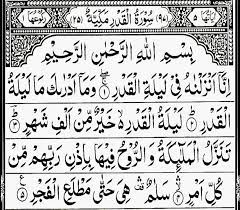 اٰیاتها ٥ (٩٧) سُوْرَةُ الْقَدْرِ مَكِّیَّةٌ (٢٥) رکوعها ١
بِسْمِ اللّٰهِ الرَّحْمٰنِ الرَّحِیْمِ
اِنَّاۤ اَنْزَلْنٰهُ فِیْ لَیْلَةِ الْقَدْرِ ۝١ وَمَاۤ اَدْرٰىكَ مَا لَیْلَةُ
الْقَدْرِ ۝٢ لَیْلَةُ الْقَدْرِ خَیْرٌ مِّنْ اَلْفِ شَهْرٍ ۝٣
تَنَزَّلُ الْمَلٰٓىِٕكَةُ وَالرُّوْحُ فِیْهَا بِاِذْنِ رَبِّهِمْ مِّنْ
كُلِّ اَمْرٍ ۝٤ سَلٰمٌ هِیَ حَتّٰی مَطْلَعِ الْفَجْرِ ۝٥